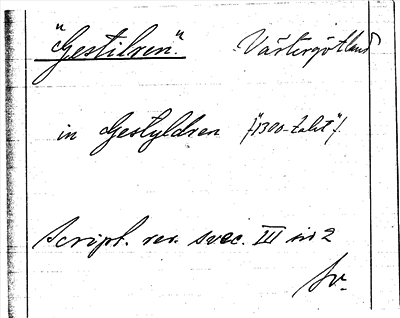 "Gestilren". Västergötland
in Gestyldren /"1300-talet"/.
Script. rer. svec. III sid 2
Sv.